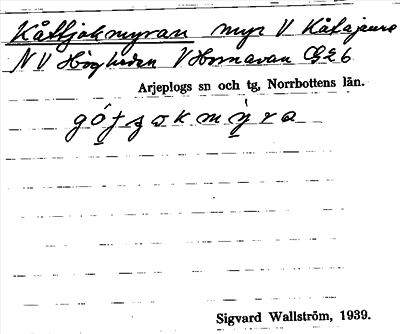 Kåtljokmyran myr V Kåtajaure
NV Högheden V Hornavan G26
Arjeplogs sn och tg, Norrbottens län.
Sigvard Wallström, 1939.